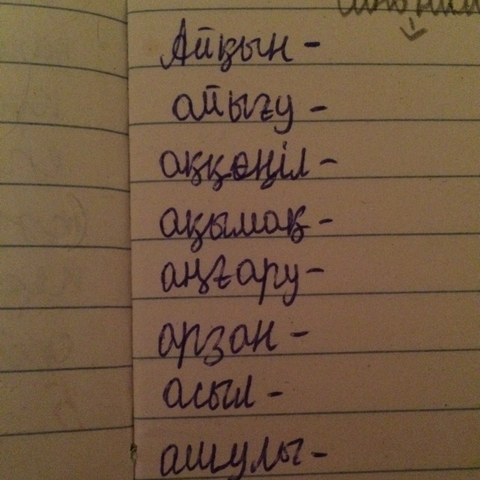 Айқын -
айығу -
аққөңіл -
ақымақ -
аңғару -
арзан -
асыл -
ашулы -